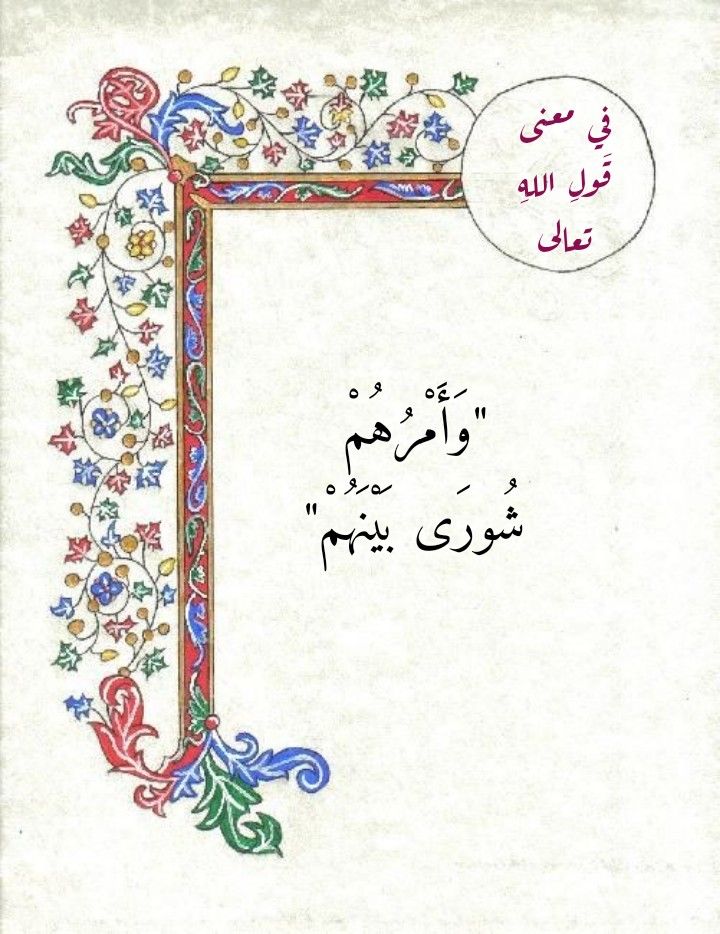 في معنى
قَولِ اللهِ
تعالى
"وَأَمْرُهُمْ
شُورَى بَيْنَهُمْ"